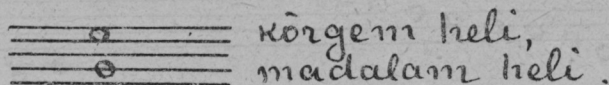 kõrgem heli,
madalam heli.